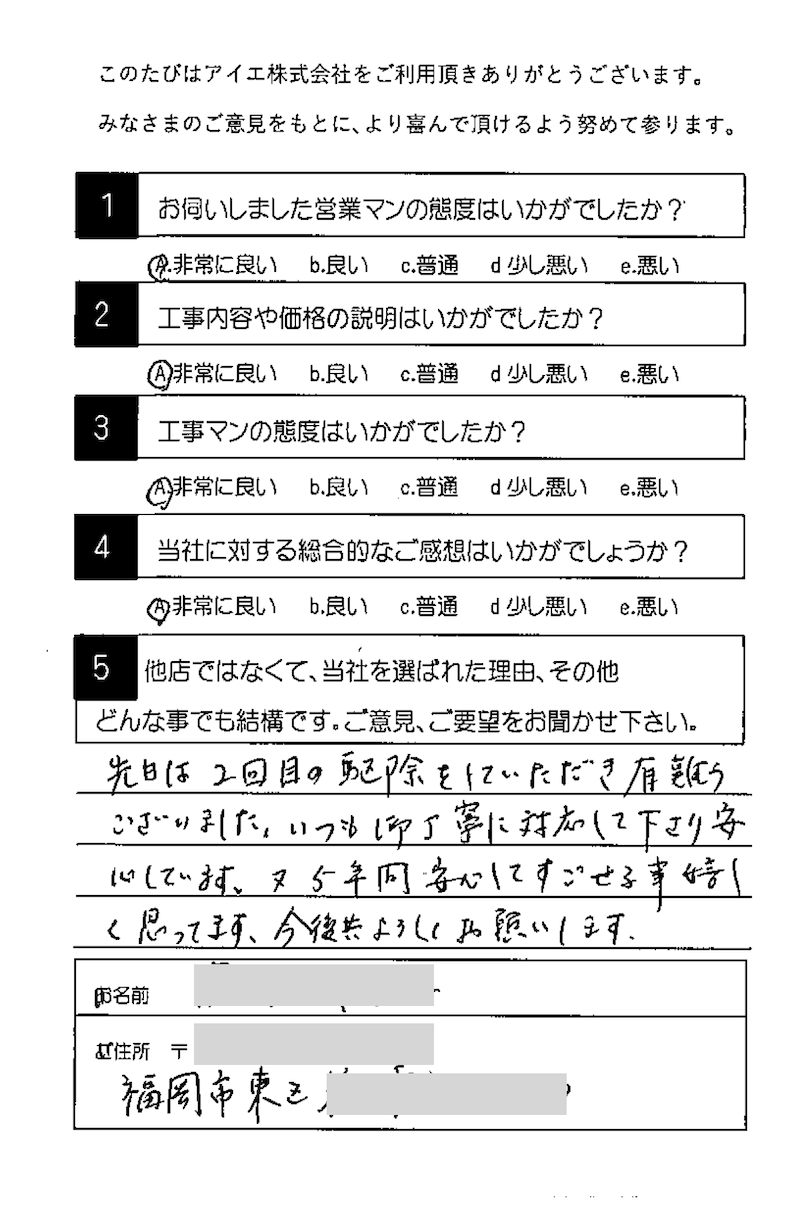 このたびはアイエ株式会社をご利用頂きありがとうございます。
みなさまのご意見をもとに、より喜んで頂けるよう努めて参ります。
1 お伺いしました営業マンの態度はいかがでしたか？
A.非常に良い b.良い c.普通 d 少し悪い e.悪い
2 工事内容や価格の説明はいかがでしたか？
A.非常に良い b.良い c.普通 d 少し悪い e.悪い
3 工事マンの態度はいかがでしたか？
A.非常に良い b.良い c.普通 d 少し悪い e.悪い
4 当社に対する総合的なご感想はいかがでしょうか？
A.非常に良い b.良い c.普通 d 少し悪い e.悪い
5 他店ではなくて、当社を選ばれた理由、その他
どんな事でも結構です。ご意見、ご要望をお聞かせ下さい。
先日は2回目の駆除をしていただき有難う
ございました。いつも御丁寧に対応して下さり安
心しています。又5年間安心してすごせる事嬉し
く思ってます。今後共よろしくお願いします。
お名前
ご住所 〒
福岡市東区